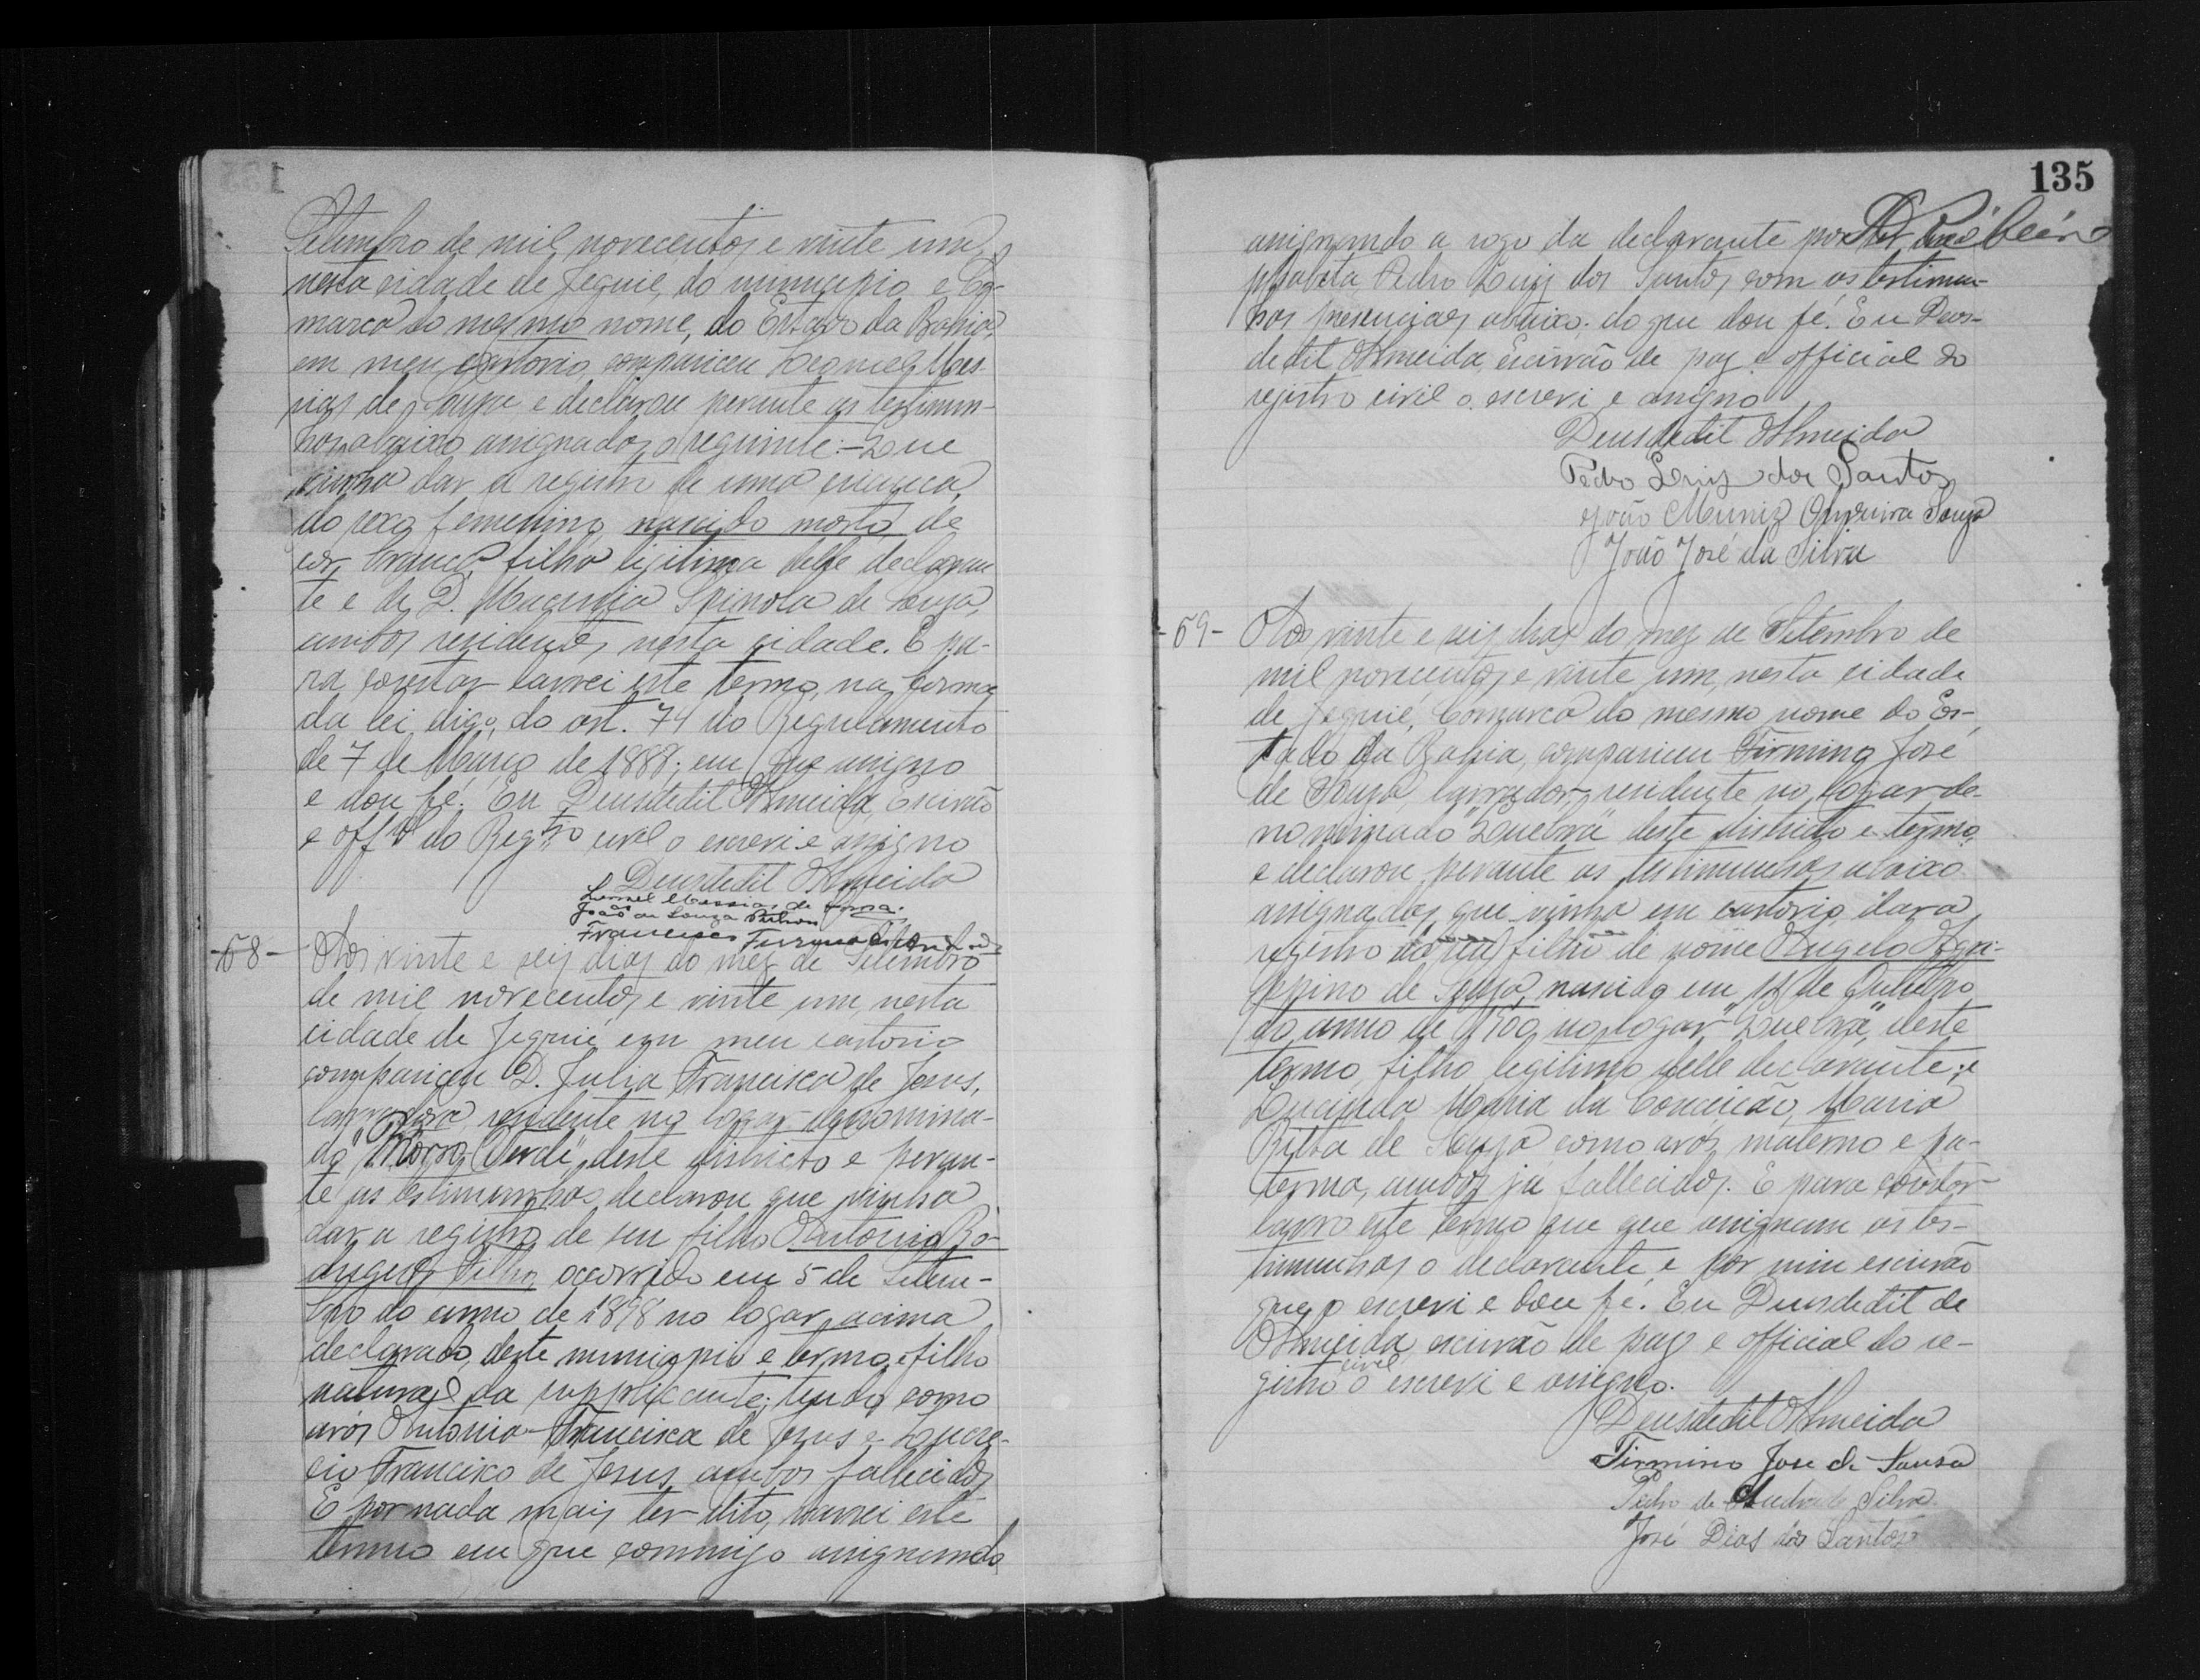 Setembro de mil novecentos e vinte um,
nesta cidade de Jequié, do municipio e Co-
marca do mesmo nome, do Estado da Bahia,
em meu cartorio, compareceu Leonel Mes-
sias de Souza e declarou perante as testimun-
has abaixo assignados, o seguinte: - Que
vinha dar a registro de uma criança,
do sexo femenino, nascido morto, de
cor branca, filha ligitima delle declaran-
te e de D. Spinola de Souza,
ambos residentes nesta cidade. E pa-
ra constar lavrei este termo, na forma
da lei digo, do art. 74 do Regulamento
de 7 de Março de 1888; em que assigno
e dou fé. Eu Deusdedit Almeida, Escrivão
e offal do Regtro civel o escrevi e assigno
Deusdedit Almeida
Leonel Messias de Souza.
João de Souza
Francisco
-68-
Aos vinte e seis dias do mez de Setembro
de mil novecentos e vinte um, nesta
cidade de Jequié em meu cartorio
compareceu D. Julia Francisca de Jesus,
lavradora, residente no logar denomina-
do "Morro Verde", deste districto e peran-
te as testimunhas declarou que vinha
dar a registro de seu filho Antonio Ro-
drigues Filho, occorrido em 5 de Setem-
bro do anno de 1898 no logar acima
declarado, deste municipio e termo, filho
natural da supplicante; tendo como
avós Antonia Francisca de Jesus e Lucre-
cio Francisco de Jesus, ambos fallecidos
E por nada mais ter dito, lavrei este
termo em que commigo assignando
135
assignando a rogo da declarante por
Pedro Luiz dos Santos, com as testimun-
has presenciaes abaixo. do que dou fé. Eu Deus-
dedit Almeida, Escrivão de paz e official do
registro civil o escrevi e assigno
Deusdedit Almeida
Pedro Luiz dos Santos
João Muniz Souza
João José da Silva
-69-
Aos vinte e seis dias do mez de Setembro de
mil novecentos e vinte um, nesta cidade
de Jequié, Comarca do mesmo nome do Es-
tado da Bahia, compareceu Firmino José
de Souza, lavrador, residente no logar de-
nominado "Quebra" deste districto e termo,
e declarou perante as testimunhas abaixo
assignadas, que vinha em cartorio dar a
registro do seu filho de nome Angelo Agri-
ppino de Souza, nascido em de Outubro
do anno de 1900, no logar "Quebra", deste
termo, filho legitimo delle declarante; e
Lucinda Maria da Conceição, Maria
Ritta de Souza como avós materno e pa-
terno, ambos já fallecidos. E para constar
lavro este termo que que assignam as tes-
timunhas o declarante e por mim escrivão
que o escrevi e dou fé. Eu Deusdedit de
Almeida, escrivão de paz e official do re-
gistro civel o escrevi e assigno.
Deusdedit Almeida
Firmino Jose de Sousa
Pedro de Andrade Silva
José Dias dos Santos